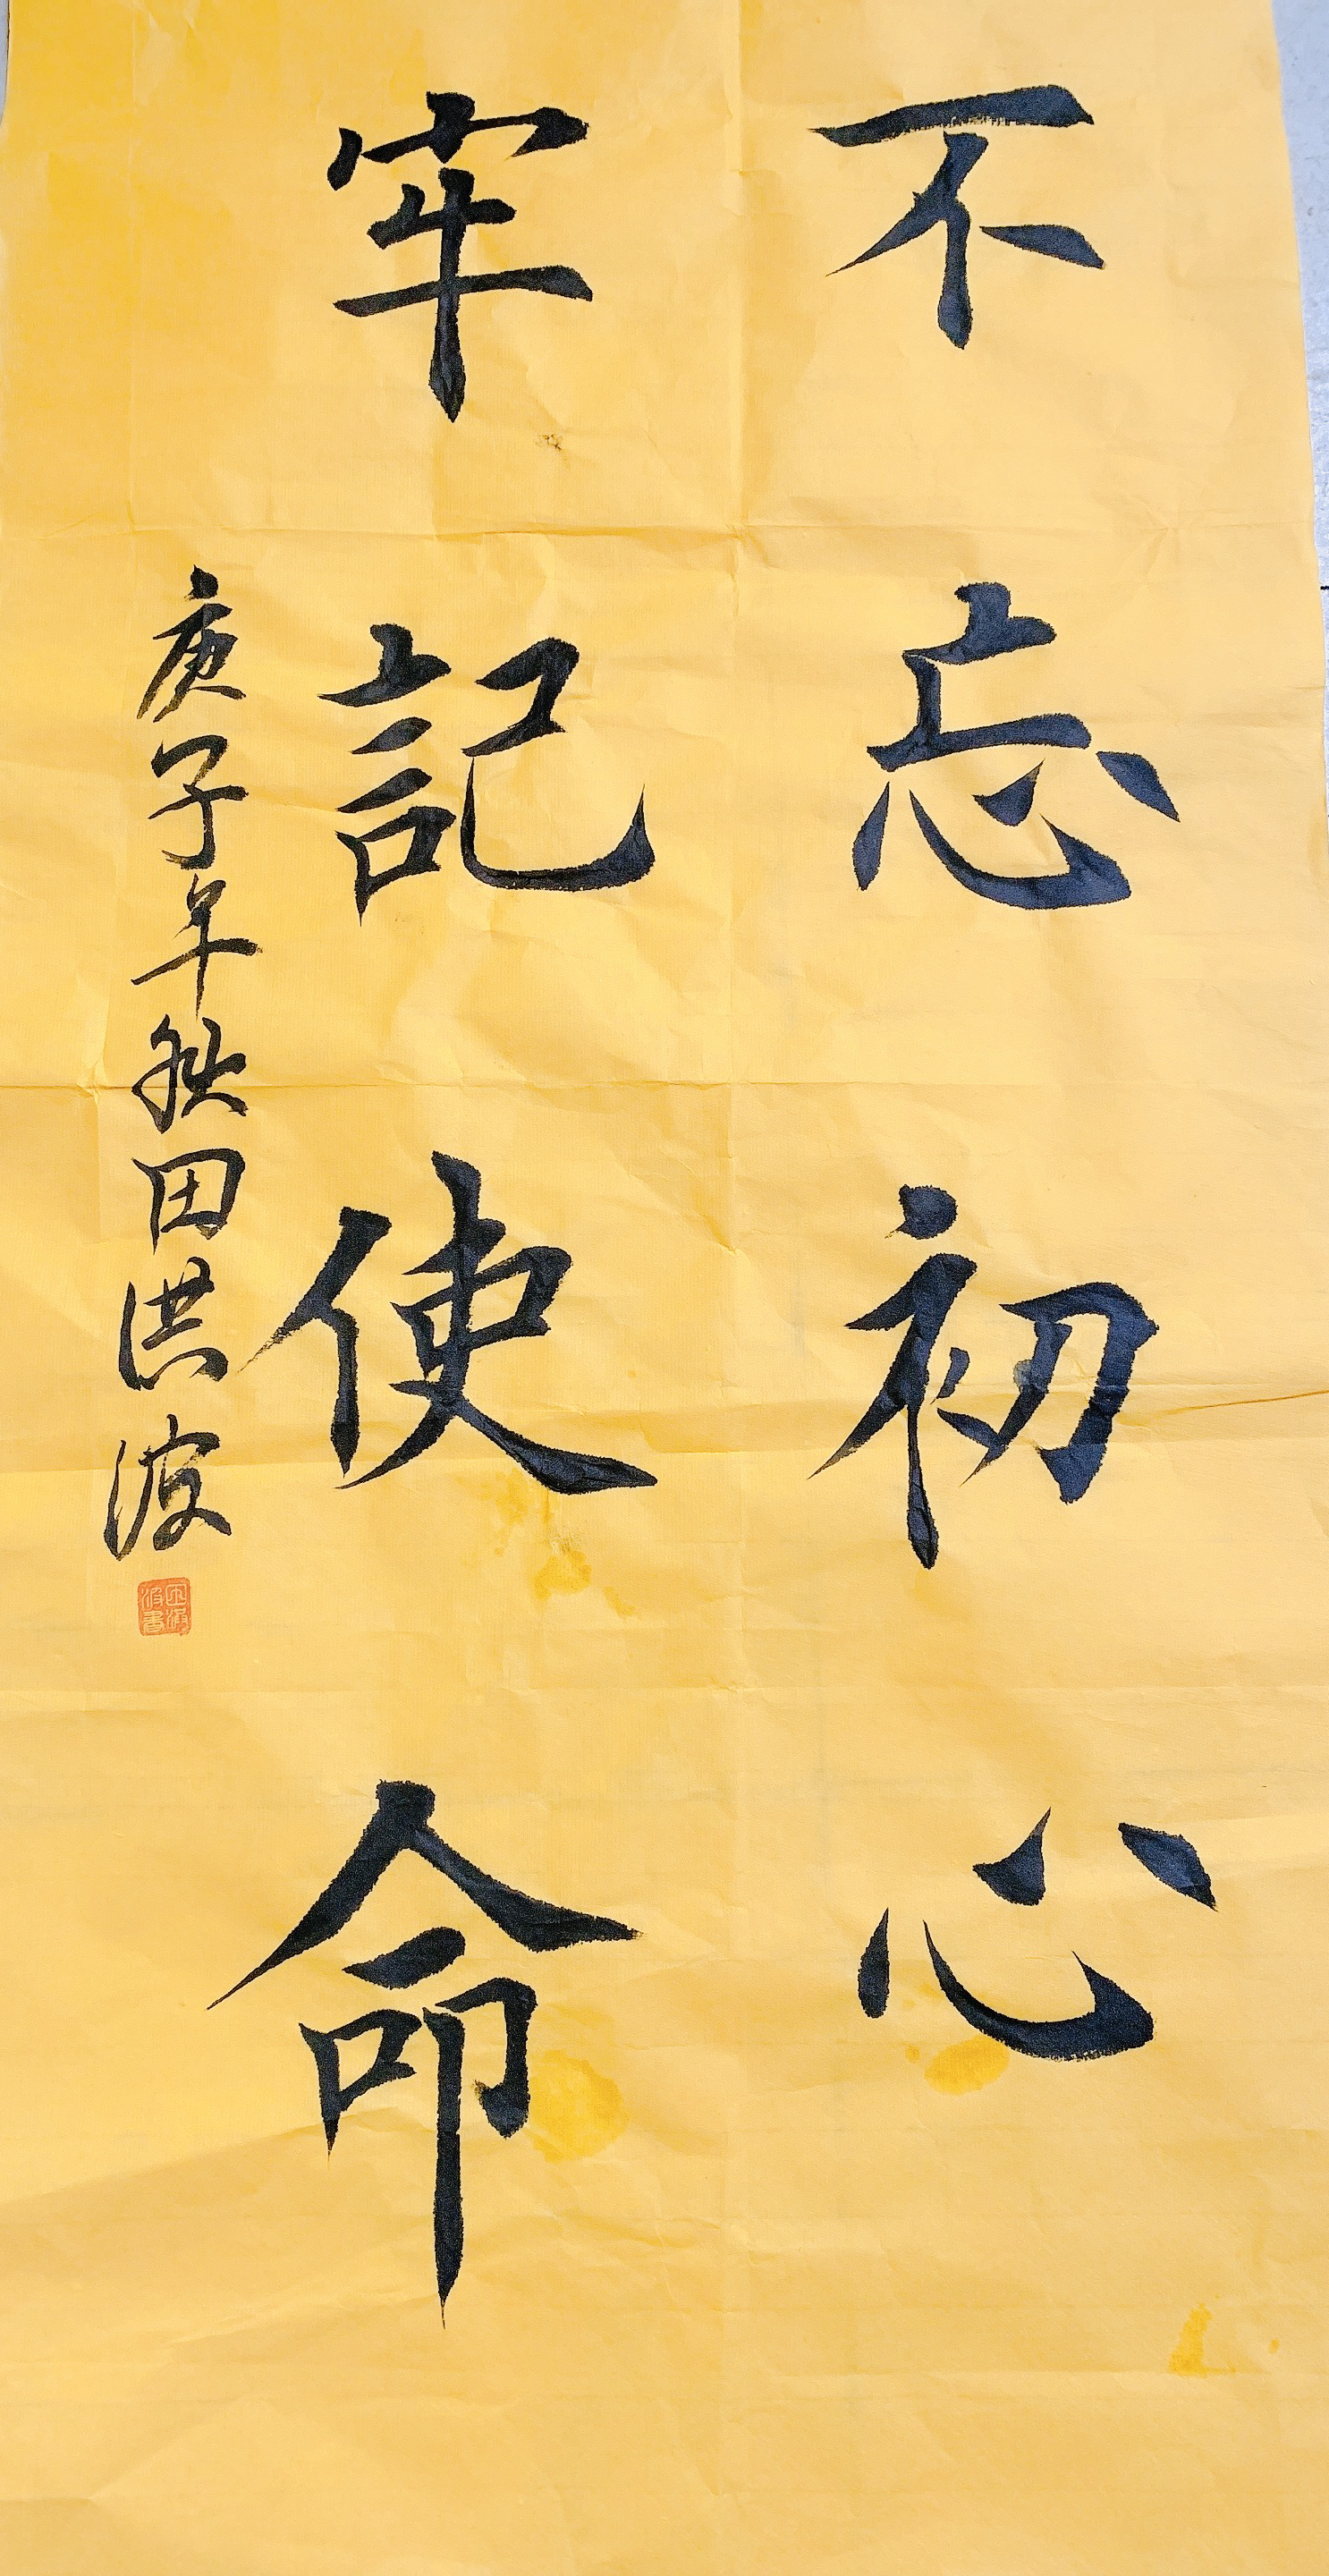 不忘初心
牢記使命
庚子年秋田洪波